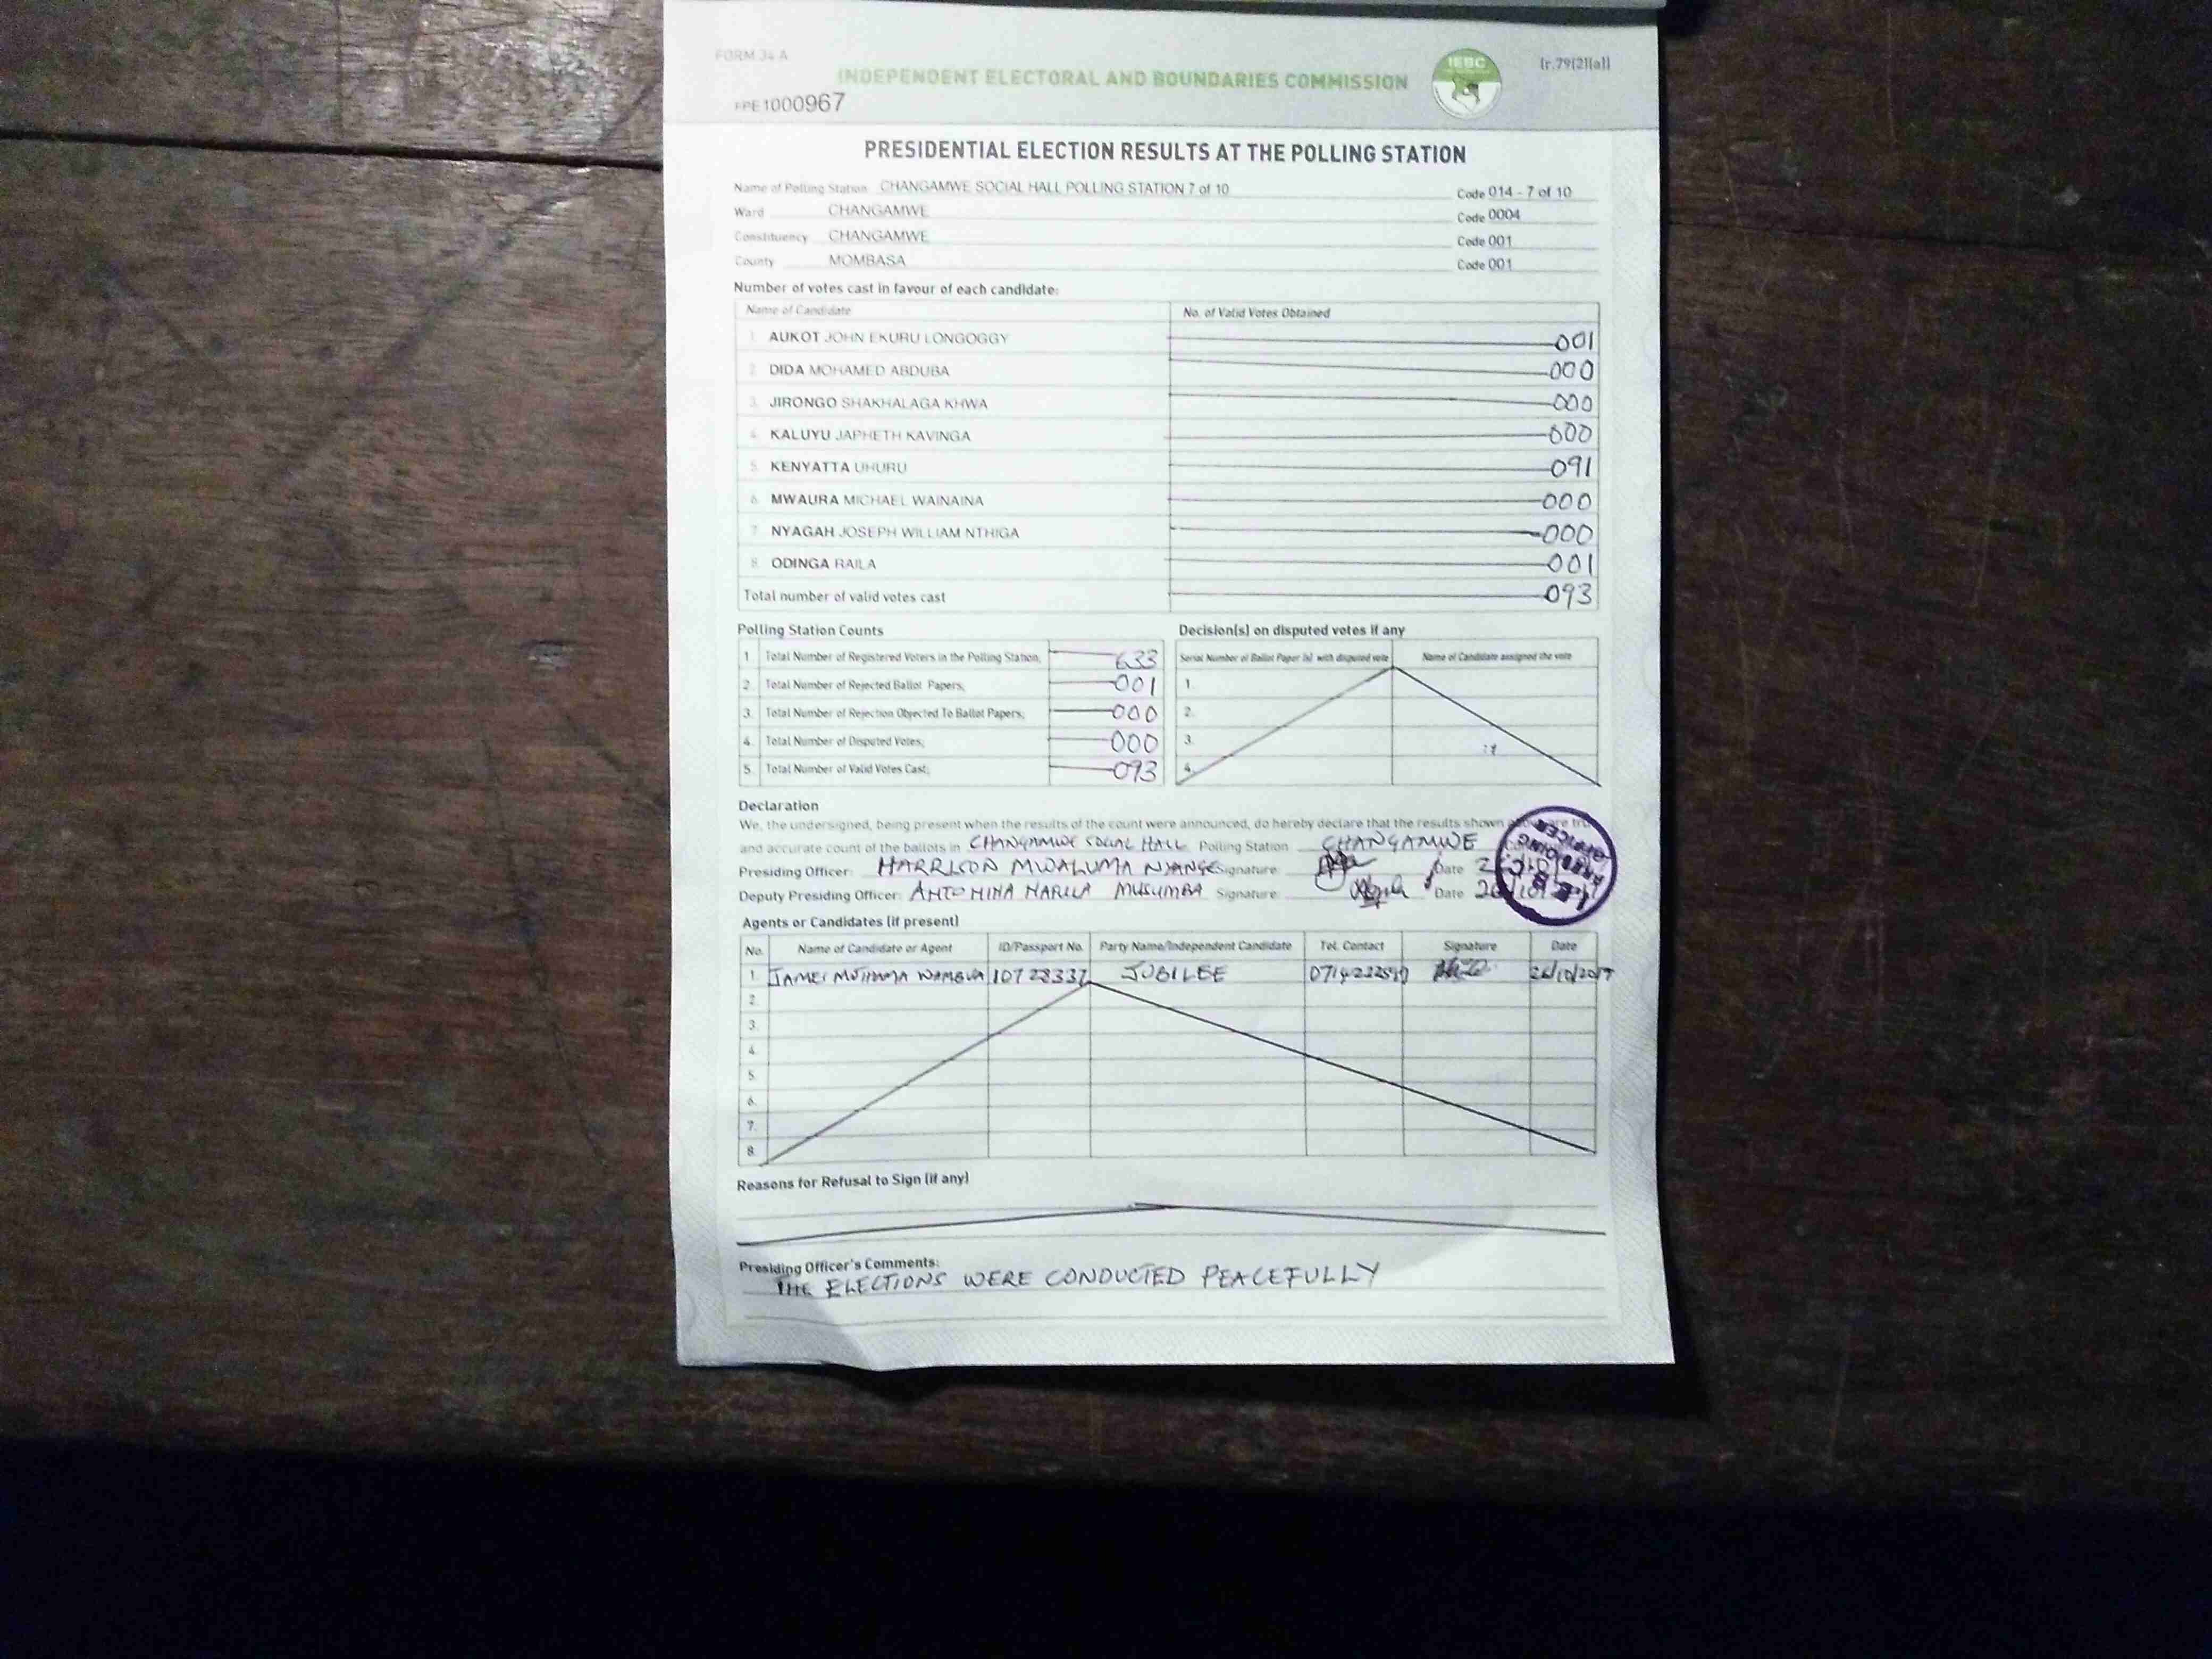 FORM 34 A
INDEPENDENT ELECTORAL AND BOUNDARIES COMMISSION
IEBC
[r.79(2)(a)]
PE1000967
PRESIDENTIAL ELECTION RESULTS AT THE POLLING STATION
Name of Polling Station CHANGAMWE SOCIAL HALL POLLING STATION 7 of 10 Code 014 - 7 of 10
Ward CHANGAMWE Code 0004
Constituency CHANGAMWE Code 001
County MOMBASA Code 001
Number of votes cast in favour of each candidate:
Name of Candidate No. of Valid Votes Obtained
1. AUKOT JOHN EKURU LONGOGGY 001
2. DIDA MOHAMED ABDUBA 000
3. JIRONGO SHAKHALAGA KHWA 000
4. KALUYU JAPHETH KAVINGA 000
5. KENYATTA UHURU 091
6. MWAURA MICHAEL WAINAINA 000
7. NYAGAH JOSEPH WILLIAM NTHIGA 000
8. ODINGA RAILA 001
Total number of valid votes cast 093
Polling Station Counts
1 Total Number of Registered Voters in the Polling Station; 633
2. Total Number of Rejected Ballot Papers; 001
3. Total Number of Rejection Objected To Ballot Papers; 000
4. Total Number of Disputed Votes; 000
5. Total Number of Valid Votes Cast; 093
Decision(s) on disputed votes if any
Serial Number of Ballot Paper (s) with disputed vote Name of Candidate assigned the vote
1.
2.
3.
4.
Declaration
We, the undersigned, being present when the results of the count were announced, do hereby declare that the results shown are
and accurate count of the ballots in CHANGAMWE SOCIAL HALL Polling Station CHANGAMWE
Presiding Officer: HARRISON MWALUMA NYANGE Signature: Date
Deputy Presiding Officer: MUSUMBA Signature: Date 26/10
PRESIDING OFFICER
Agents or Candidates (if present)
No. Name of Candidate or Agent ID/Passport No. Party Name/Independent Candidate Tel. Contact Signature Date
1. JAMES WAMBUA 10728337 JUBILEE 26/10/2017
2.
3.
4.
5.
6.
7.
8.
Reasons for Refusal to Sign (if any)
Presiding Officer's Comments:
THE ELECTIONS WERE CONDUCTED PEACEFULLY